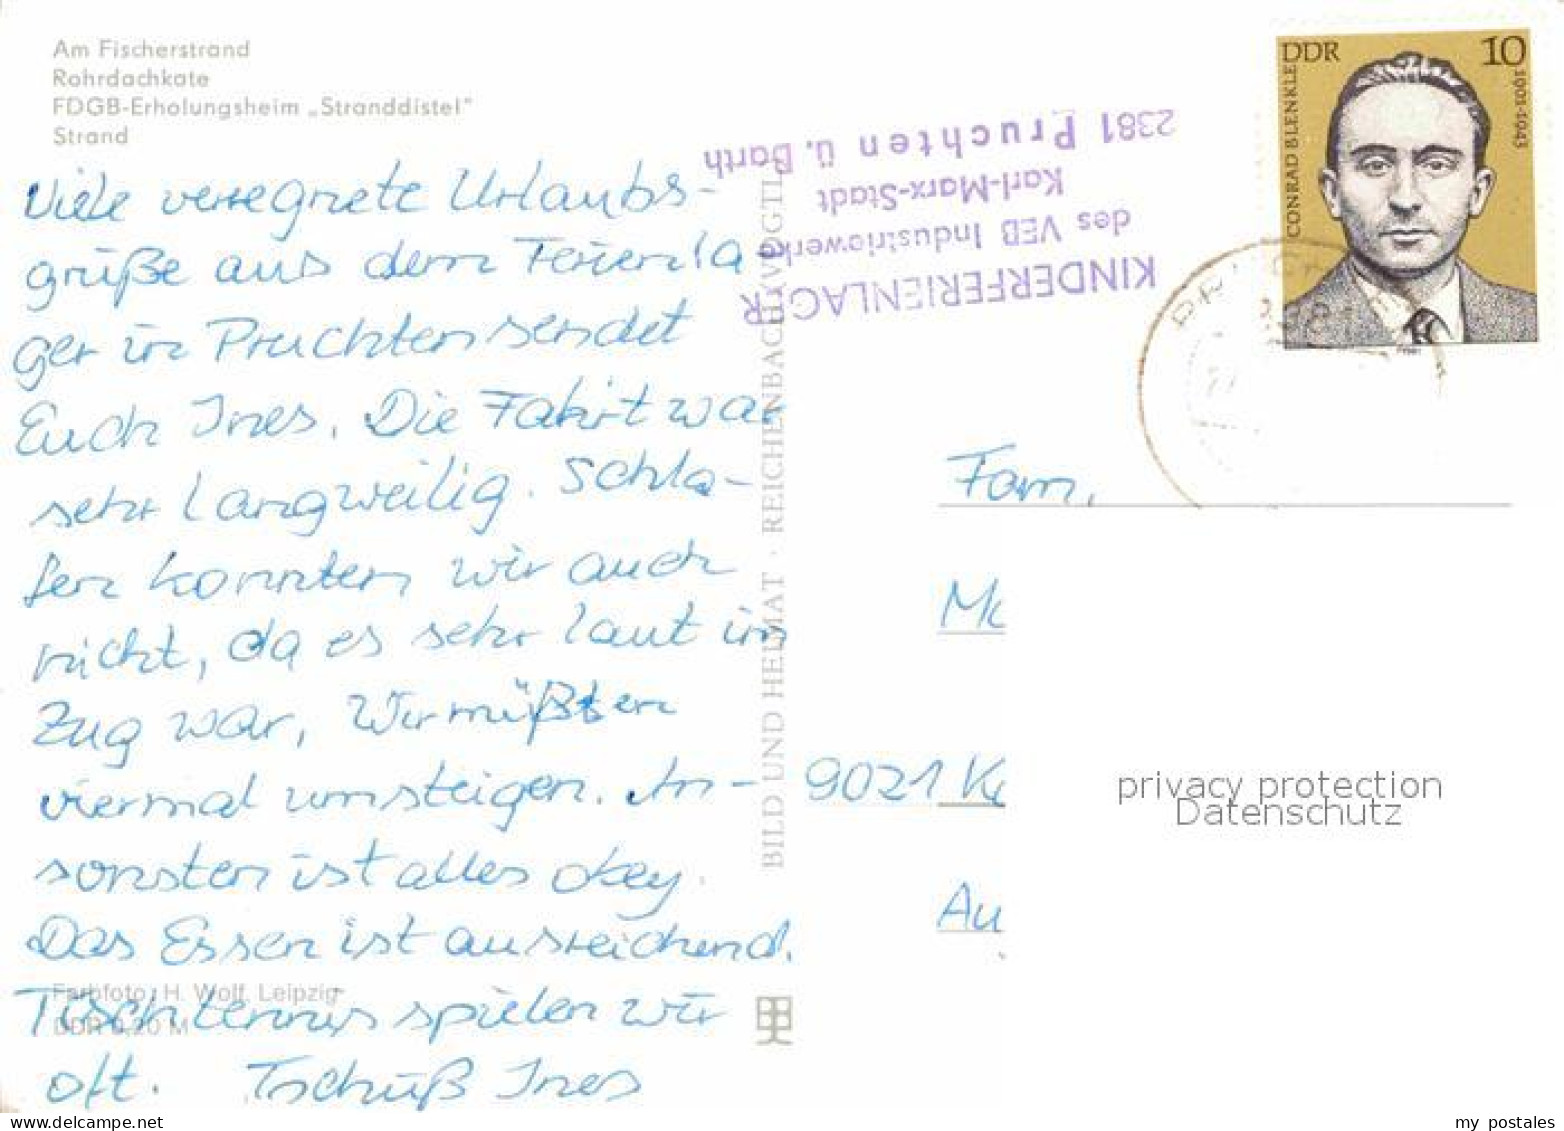 Am Fischerstrand
Rohrdachkate
FDGB-Erholungsheim „Stranddistel“
Strand
Viele verregnete Urlaubs-
grüße aus dem Ferienla
ger in Pruchten sendet
Euch Ines. Die Fahrt war
sehr langweilig. Schla-
fen konnten wir auch
nicht, da es sehr laut im
Zug war, Wir müßten
viermal umsteigen. An-
sonsten ist alles okey.
Das Essen ist ausreichend.
Tischtennis spielen wir
oft. Tschüß Ines
Farbfoto: H. Wolf, Leipzig
DDR 0,20 M
BILD UND HEIMAT · REICHENBACH (VOGTL
KINDERFERIENLAGER
des VEB Industriewerke
Karl-Marx-Stadt
2381 Pruchten ü. Barth
DDR 10
CONRAD BLENKLE
1901-1943
Fam.
9021
privacy protection
Datenschutz
www.delcampe.net
my_postales